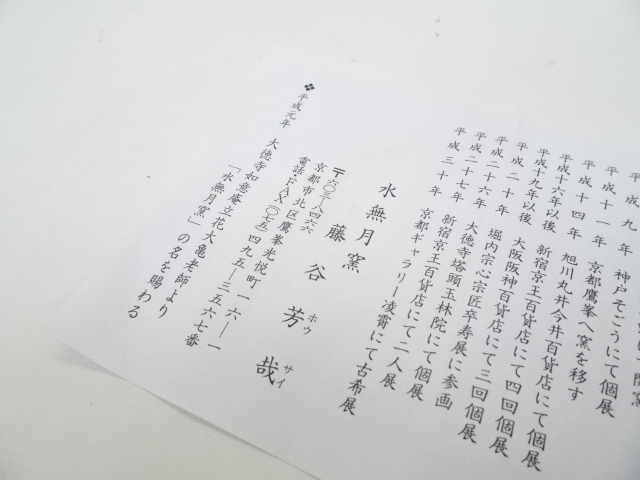 平成九年 神戸そごうにて個展
平成十一年 京都鷹峯へ窯を移す
平成十四年 旭川丸井今井百貨店にて個展
平成十六年以後 新宿京王百貨店にて四回個展
平成十九年以後 大阪阪神百貨店にて三回個展
平成二十年 堀内宗心宗匠卒寿展に参画
平成二十六年 大徳寺塔頭玉林院にて個展
平成二十七年 新宿京王百貨店にて二人展
平成三十年 京都ギャラリー凌霄にて古希展
水無月窯
藤谷芳哉
ホウ サイ
〒六〇三―八四六六
京都市北区鷹峯光悦町一六―一
電話・FAX〇七五―四九五―三五六七番
❖平成元年 大徳寺如意庵立花大亀老師より
「水無月窯」の名を賜わる